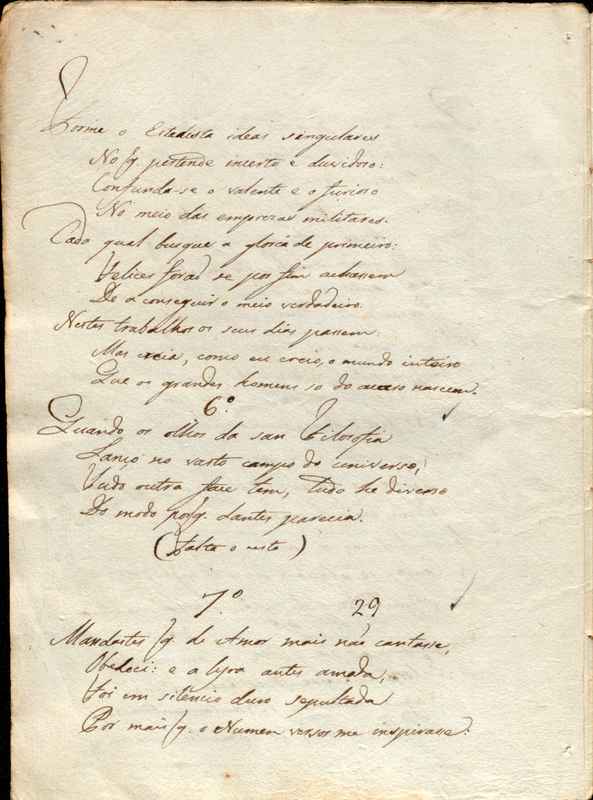 Forme o Estadista ideas singulares
No q. pertende incerto e duvidoso:
Confunda-se o valente e o furioso
No meio das emprezas militares.
Cada qual busque a gloria de primeiro:
Felices foraõ se por fim achassem
De a conseguir o meio verdadeiro.
Nestes trabalhos os seus dias passem:
Mas creia, como eu creio, o mundo inteiro
Que os grandes homens so do acaso nascem.
6.º
Quando os olhos da san Filosofia
Lanço no vasto campo do universo,
Tudo outra face tem, tudo he diverso
Do modo por q. dantes parecia.
(Falta o resto)
7.º 29
Mandastes q. de Amor mais naõ cantasse,
Obedeci: e a lyra antes amada,
Foi em silêncio duro sepultada
Por mais q. o Numen versos me inspirasse: